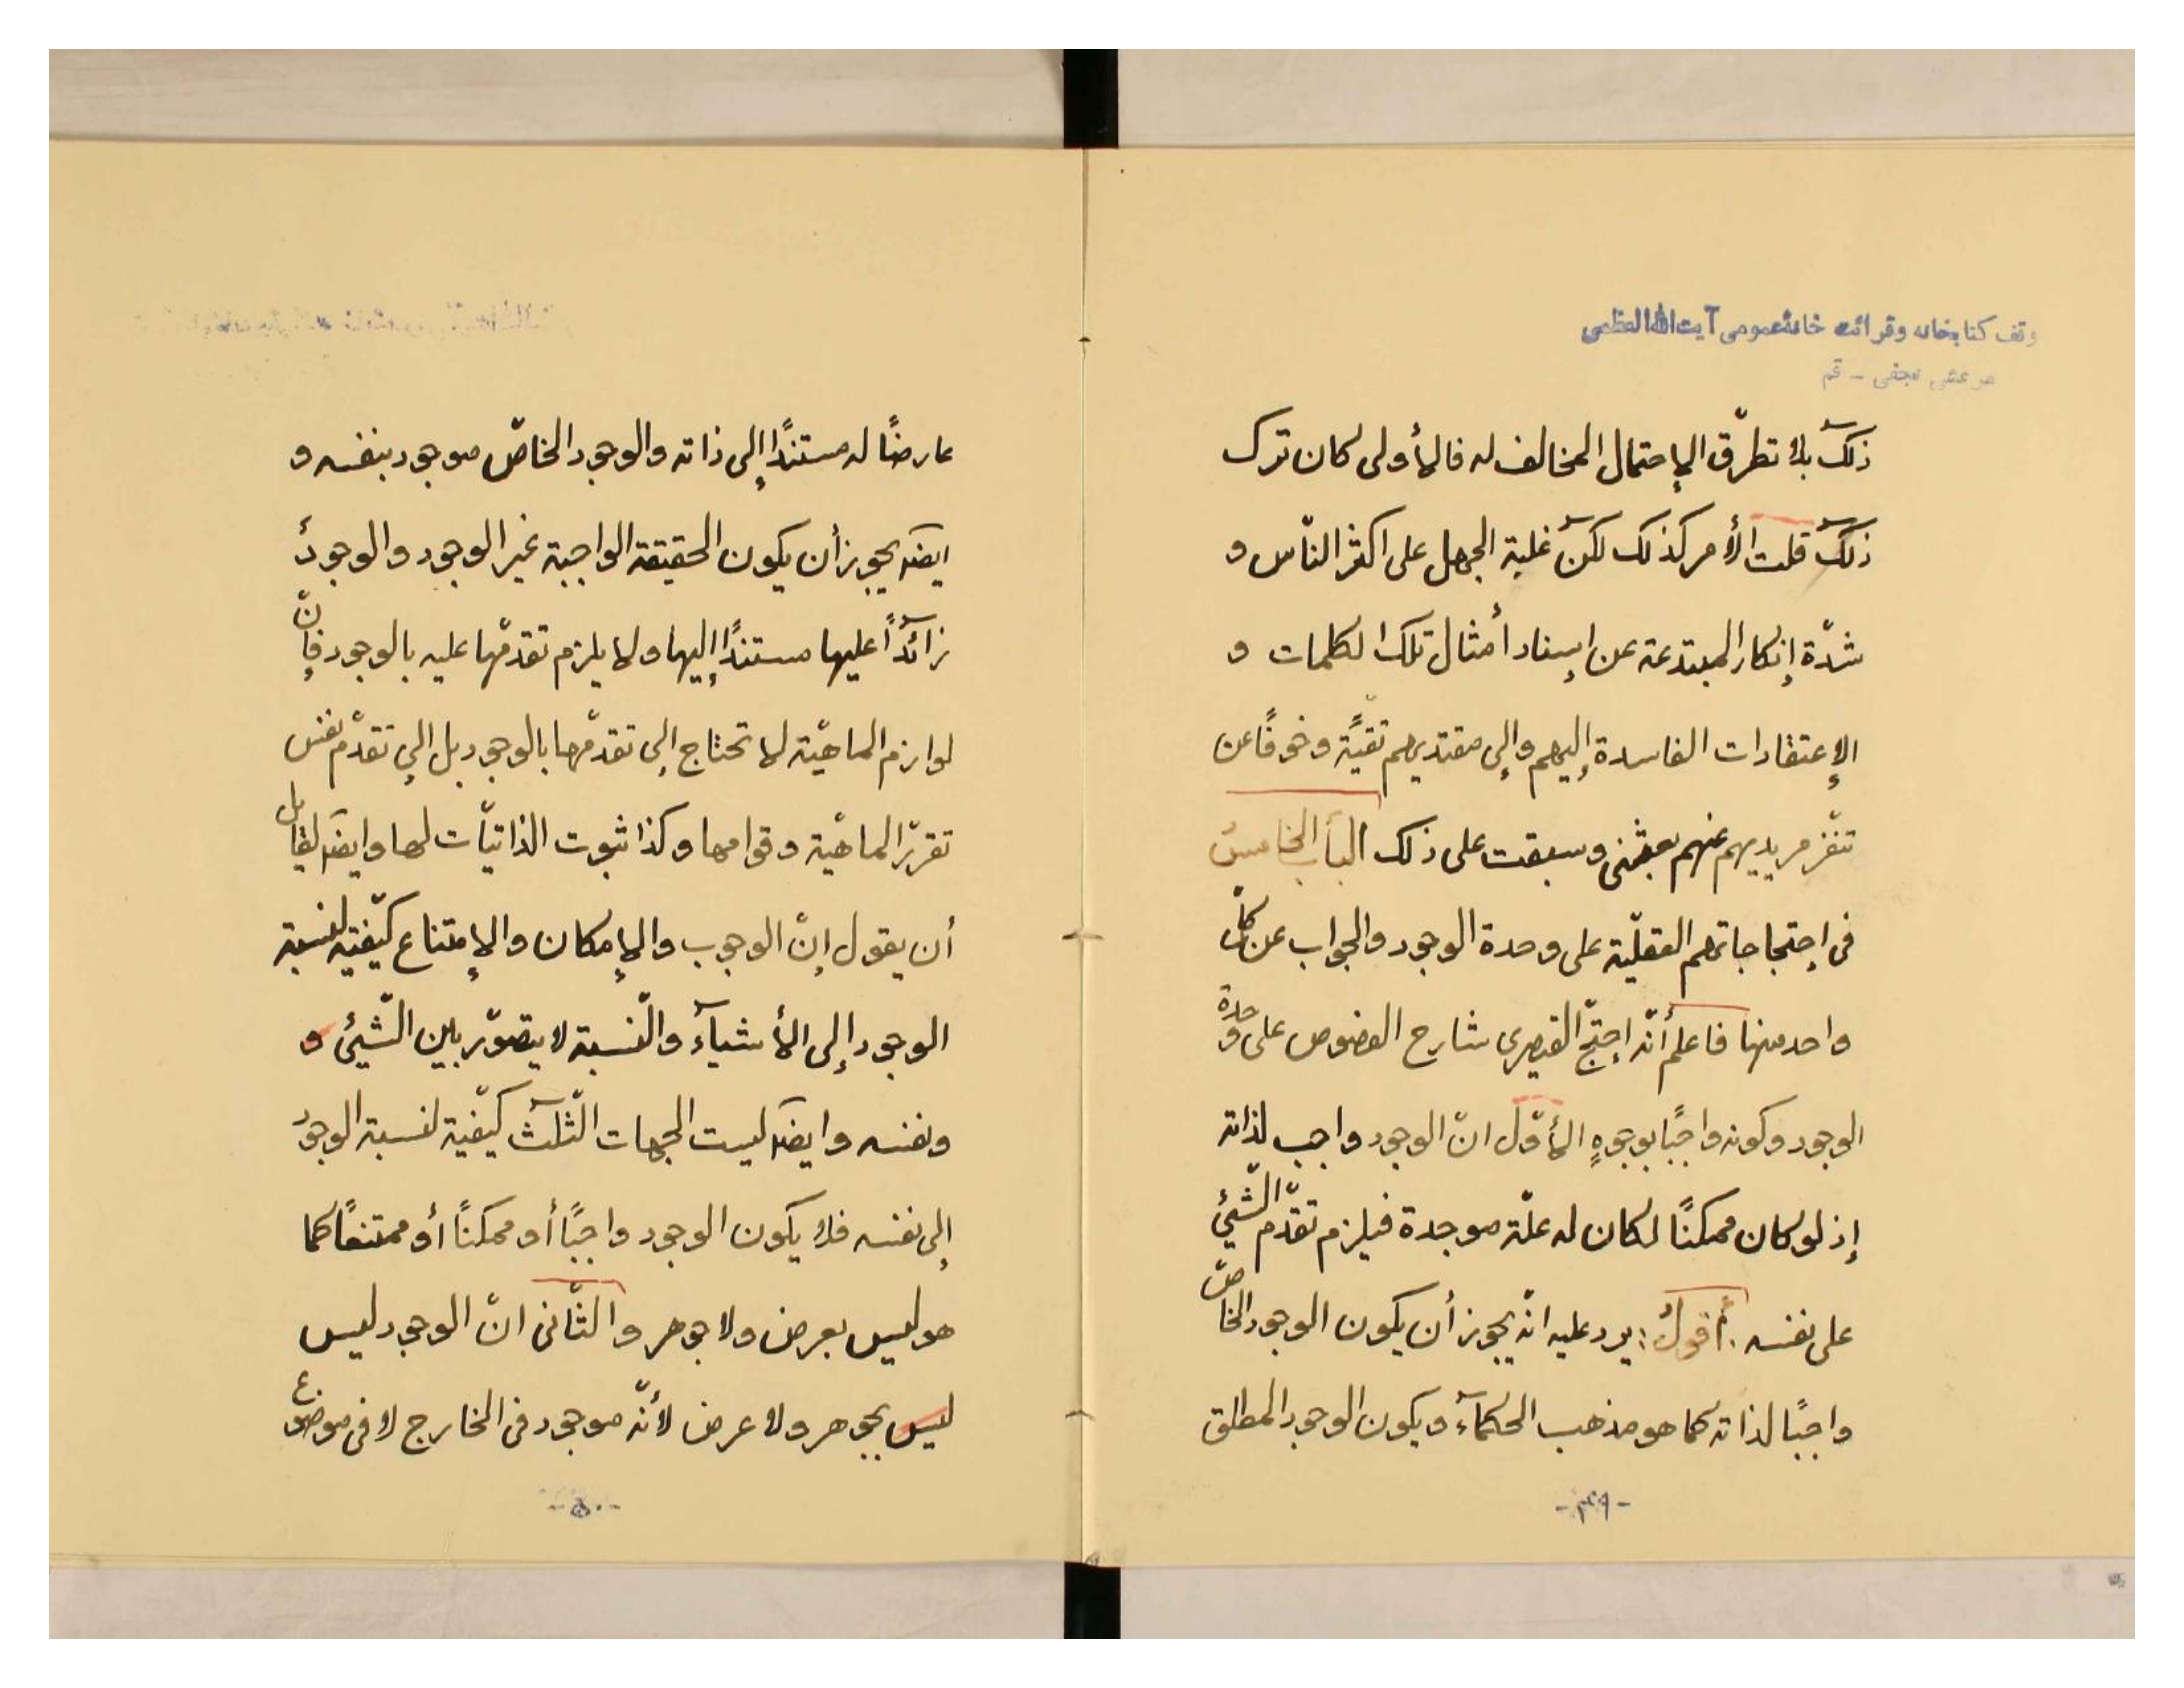 وقف كتابخانه وقرائت خانه عمومى آيت الله العظمى
مرعشى نجفى - قم
ذلك بلا تطرّق الإحتمال المخالف له فالأولى كان ترك
ذلك قلت الأمر كذلك لكن غلبة الجهل على اكثر النّاس و
شدّة إنكار المبتدعة عن إسناد أمثال تلك الكلمات و
الإعتقادات الفاسدة إليهم وإلى مقتديهم تقيّةً وخوفًا عن
تنفّر مريديهم عنهم بعثنى وسبقت على ذلك الباب الخامس
فى إحتجاجاتهم العقليّة على وحدة الوجود والجواب عن كلّ
واحد منها فاعلم أنّه إحتجّ القيصرى شارح الفصوص على وحدة
الوجود وكونه واجبًا بوجوهٍ الأوّل انّ الوجود واجب لذاته
إذ لو كان ممكنًا لكان له علّة موجدة فيلزم تقدّم الشّيئ
على نفسه . أقول : يرد عليه انّه يجوز أن يكون الوجود الخاصّ
واجبًا لذاته كما هو مذهب الحكمآء ويكون الوجود المطلق
- ٤٩ -
عارضًا له مستندًا إلى ذاته والوجود الخاصّ موجود بنفسه و
ايضا يجوز أن يكون الحقيقة الواجبة غير الوجود والوجودُ
زائدًا عليها مستندًا إليها ولا يلزم تقدّمها عليه بالوجود فإنّ
لوازم الماهيّة لا تحتاج إلى تقدّمها بالوجود بل إلى تقدّم نفس
تقرّر الماهيّة وقوامها وكذا ثبوت الذاتيّات لها وايضا لقايل
أن يقول إنّ الوجوب والإمكان والإمتناع كيّفيّة لنسبة
الوجود إلى الأشيآء والنّسبة لا يتصوّر بين الشّيئ و
ونفسه وايضا ليست الجهات الثّلث كيّفيّة لنسبة الوجود
إلى نفسه فلا يكون الوجود واجبًا أو ممكنًا أو ممتنعًا كما
هو ليس بعرض ولا جوهر والثّانى انّ الوجود ليس
ليس بجوهر ولا عرض لأنّه موجود فى الخارج لا فى موضوع
- ٥٠ -